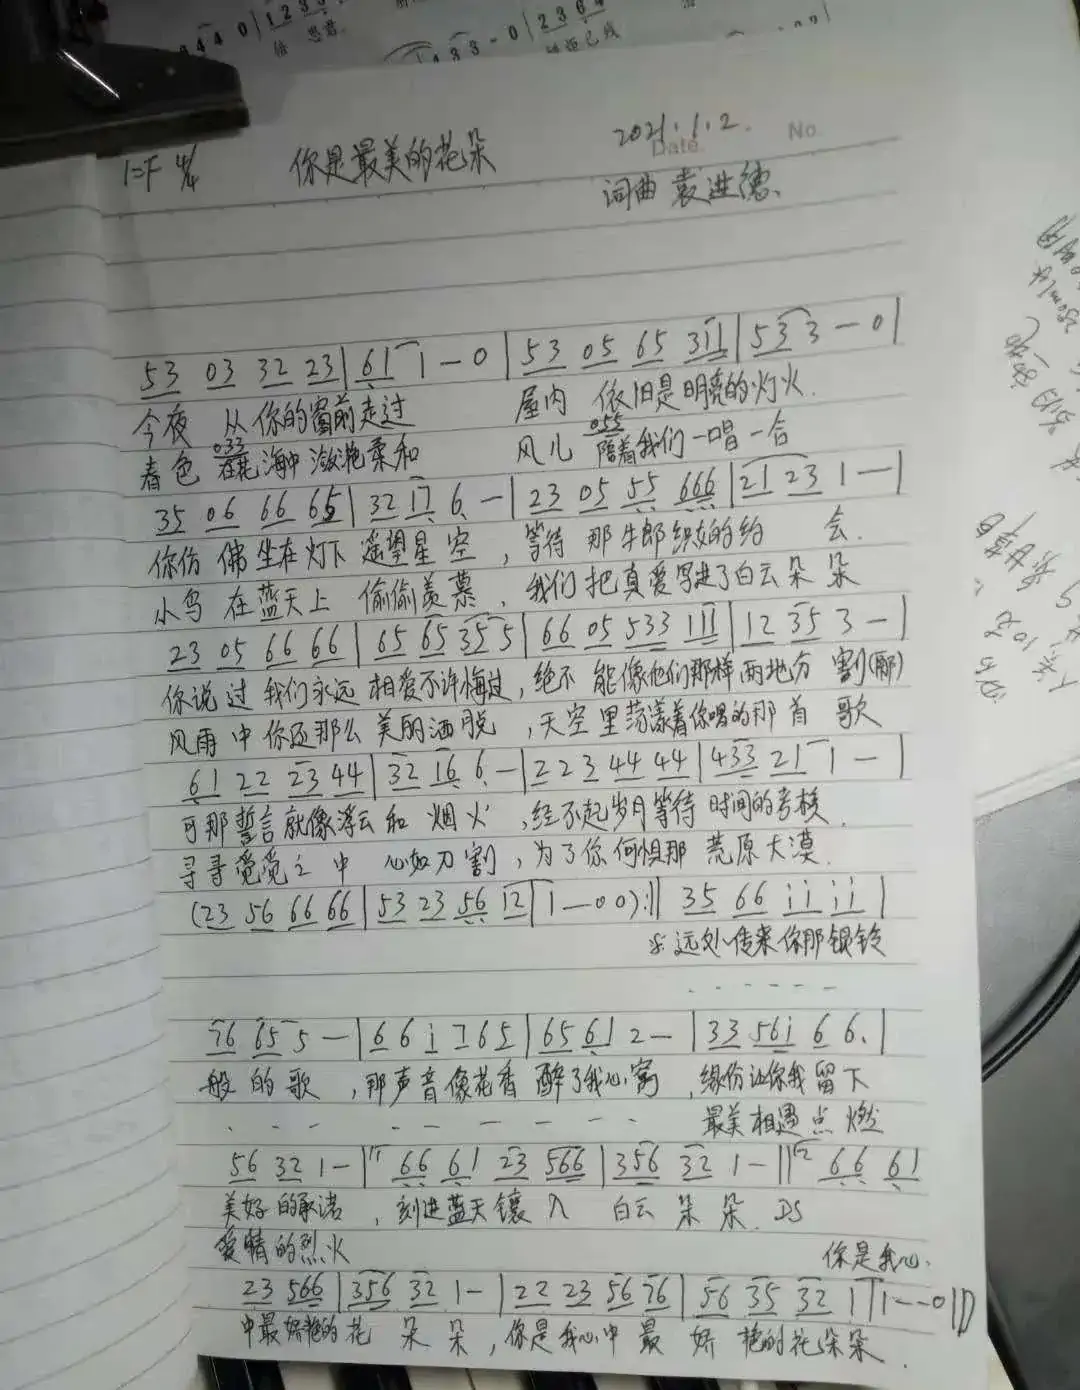 2021.1.2.
Date No.
1=F 4/4 你是最美的花朵
词曲 袁进德
53 03 32 23|61 1-0|53 05 65 311|533-0|
今夜 从你的窗前走过 屋内 依旧是明亮的灯火.
033 055
春色 在花海中潋滟柔和 风儿 陪着我们一唱一合
35 06 66 65|32 17 6.-|23 05 55 666|21 23 1-|
你仿佛坐在灯下遥望星空,等待那牛郎织女的约会.
小鸟在蓝天上 偷偷羡慕,我们把真爱写进了白云朵朵
23 05 66 66|65 65 35 5|66 05 533 111|12 35 3-|
你说过我们永远相爱不许悔过,绝不能像他们那样两地分割(那)
风雨中你还那么美丽洒脱,天空里荡漾着你唱的那首歌
61 22 23 44|32 16 6.-|22 3 44 44|433 21 1-|
可那誓言就像浮云和烟火,经不起岁月等待时间的考核.
寻寻觅觅之中 心如刀割,为了你何惧那荒原大漠.
(23 56 66 66|53 23 56 12|1-00):|| 35 66 ii ii|
远处传来你那银铃
76 65 5-|66i 765|65 61 2-|33 56i 6 6.|
般的歌,那声音像花香醉了我心窝,缘份让你我留下
最美相遇点燃
56 32 1-|1 66 61 23 566|356 32 1-||2 66 61
美好的承诺,刻进蓝天镶入 白云朵朵. DS
爱情的烈火 你是我心.
23 566|356 32 1-|22 23 56 76|56 35 32 1|1--0||
中最娇艳的花朵朵,你是我心中最娇艳的花朵朵.